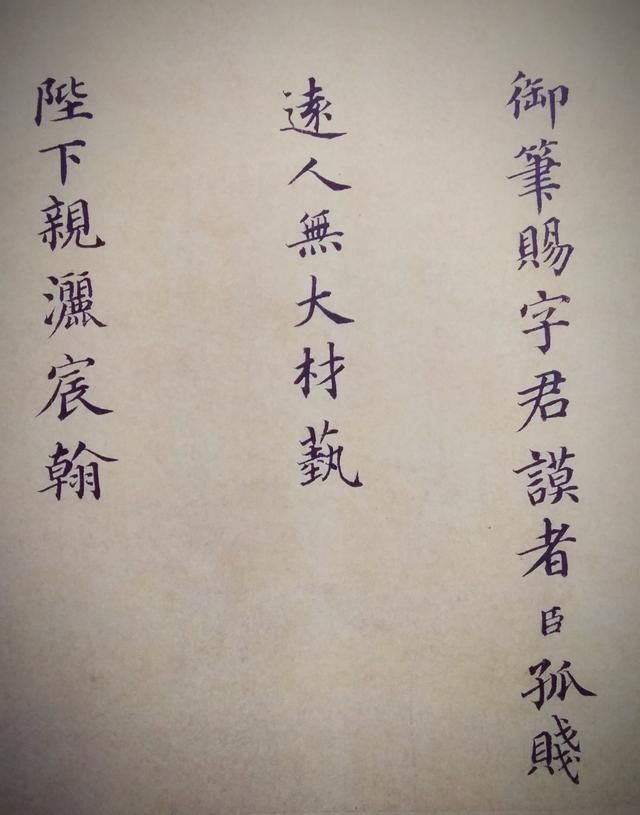 御筆賜字君謨者臣孤賤
遠人無大材藝
陛下親灑宸翰